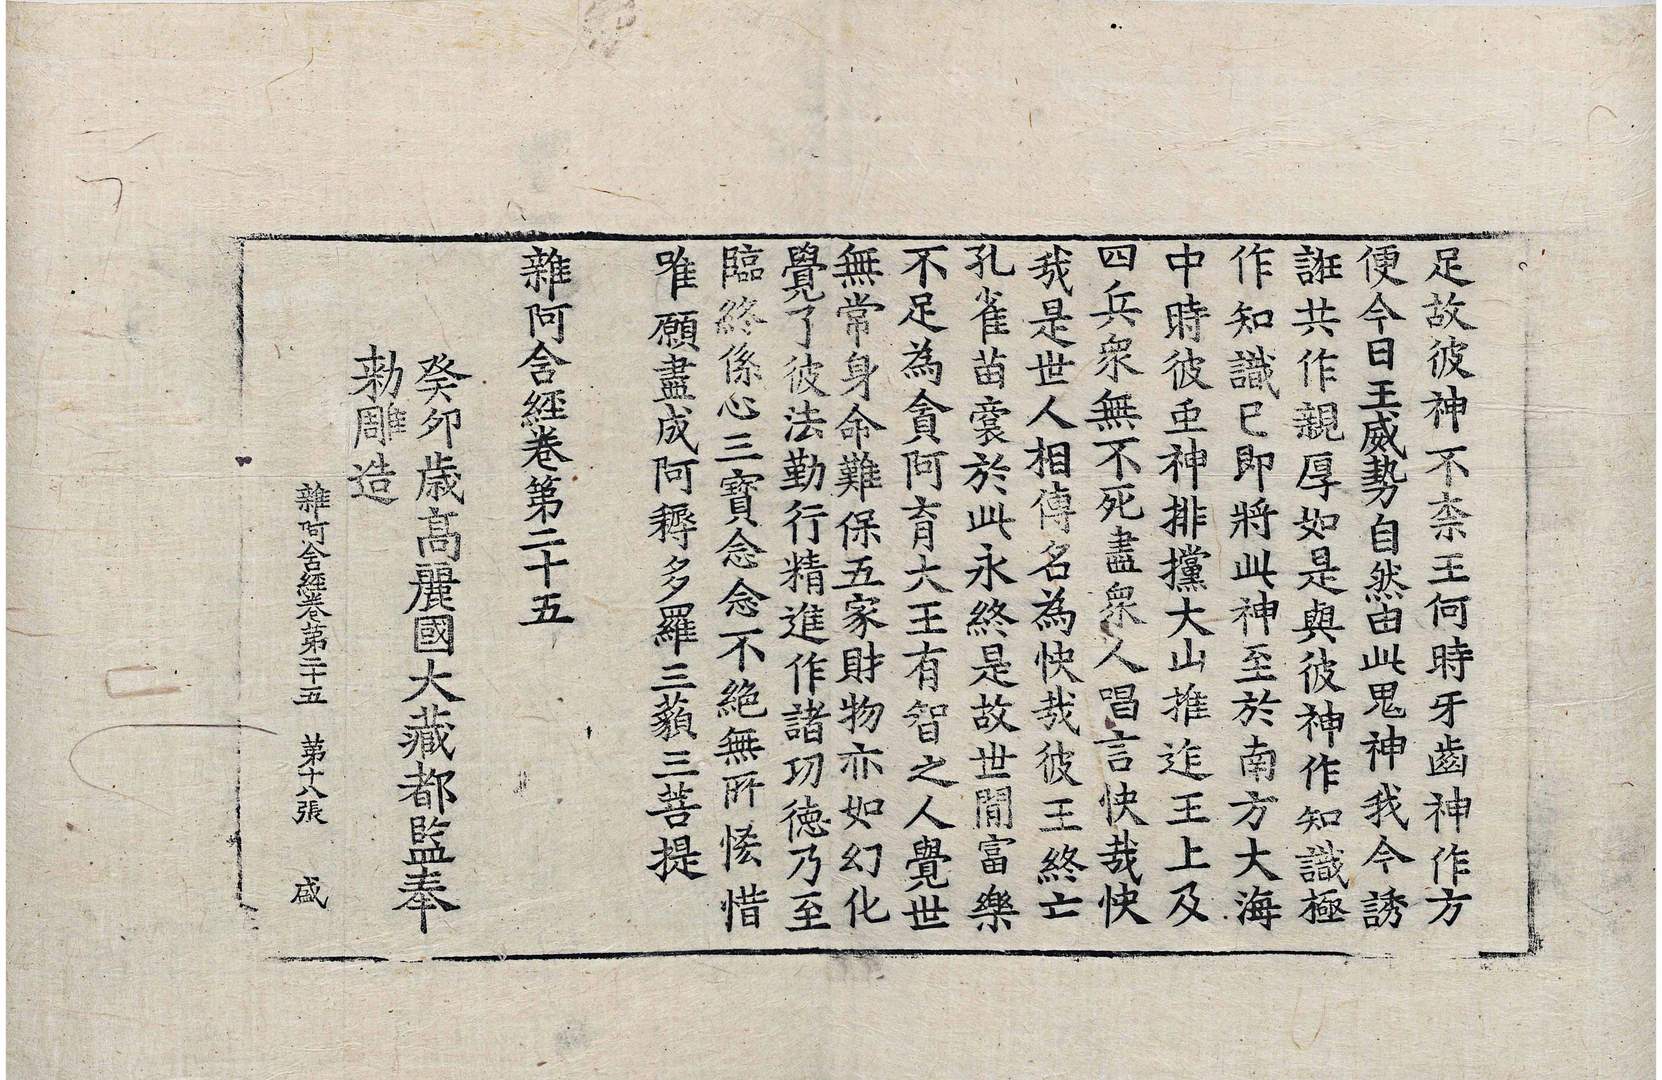 足故彼神不柰王何時牙齒神作方
便今日王威勢自然由此鬼神我今誘
誑共作親厚如是與彼神作知識極
作知識已即將此神至於南方大海
中時彼虫神排攩大山推迮王上及
四兵衆無不死盡衆人唱言快哉快
哉是世人相傳名為快哉彼王終亡
孔雀苗裔於此永終是故世閒富樂
不足為貪阿育大王有智之人覺世
無常身命難保五家財物亦如幻化
覺了彼法勤行精進作諸功德乃至
臨終係心三寶念念不絶無所悋惜
唯願盡成阿耨多羅三藐三菩提
雜阿含經卷第二十五
癸卯歳高麗國大藏都監奉
勑雕造
雜阿含經卷第二十五 第十八張 盛